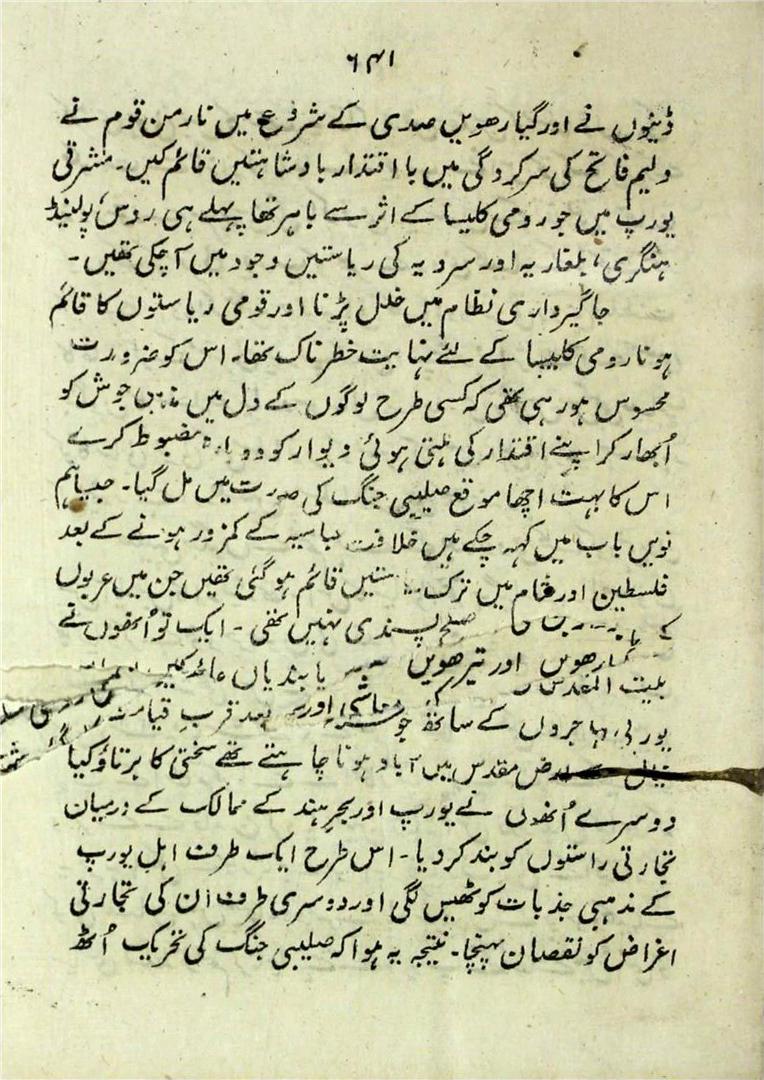 ۶۴۱
ڈینوں نے اور گیارھویں صدی کے شروع میں نارمن قوم نے
ولیم فاتح کی سرکردگی میں با اقتدار بادشاہتیں قائم کیں۔ مشرقی
یورپ میں جو رومی کلیسا کے اثر سے باہر تھا پہلے ہی روس، پولینڈ
ہنگری، بلغاریہ اور سرویہ کی ریاستیں وجود میں آچکی تھیں۔
جاگیرداری نظام میں خلل پڑنا اور قومی ریاستوں کا قائم
ہونا رومی کلیسا کے لئے نہایت خطرناک تھا۔ اس کو ضرورت
محسوس ہو رہی تھی کہ کسی طرح لوگوں کے دل میں مذہبی جوش کو
اُبھار کر اپنے اقتدار کی ہلتی ہوئی دیوار کو دوبارہ مضبوط کرے
اس کا بہت اچھا موقع صلیبی جنگ کی صورت میں مل گیا۔ جیسا ہم
نویں باب میں کہہ چکے ہیں خلافت عباسیہ کے کمزور ہونے کے بعد
فلسطین اور شام میں ترک قائم ہو گئی تھیں جن میں عربوں
کے صلح پسندی نہیں تھی۔ ایک تو اُنھوں نے
بیت المقدس اور تیرھویں پابندیاں عائد کیں
یورپی مہاجروں کے ساتھ جو اور بعد قرب قیامت
خیال سے ارض مقدس میں آباد ہونا چاہتے تھے سختی کا برتاؤ کیا
دوسرے اُنھوں نے یورپ اور بحر ہند کے ممالک کے درمیان
تجارتی راستوں کو بند کر دیا۔ اس طرح ایک طرف اہل یورپ
کے مذہبی جذبات کو ٹھیس لگی اور دوسری طرف ان کی تجارتی
اغراض کو نقصان پہنچا۔ نتیجہ یہ ہوا کہ صلیبی جنگ کی تحریک اُٹھ